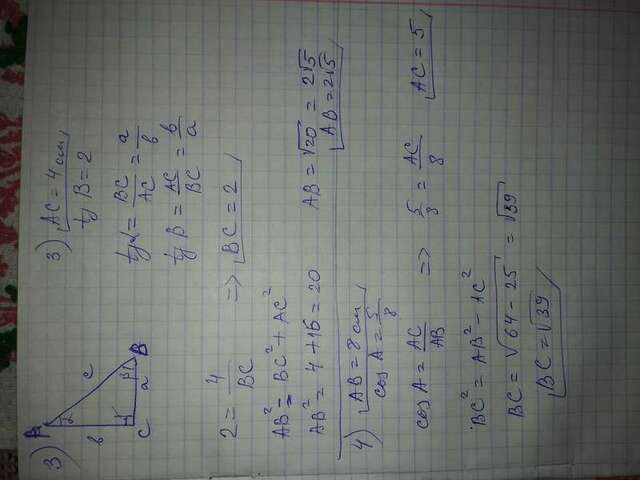 3)
A
α
b
c
C
a
β
B
3) AC = 4 cm
tg B = 2
tg α = BC/AC = a/b
tg B = AC/BC = b/a
2 = 4/BC => BC = 2
AB² = BC² + AC²
AB² = 4 + 16 = 20 AB = √20 = 2√5
AB = 2√5
4) AB = 8 cm
cos A = 5/8
cos A = AC/AB => 5/8 = AC/8 AC = 5
BC² = AB² - AC²
BC = √64 - 25 = √39
BC = √39